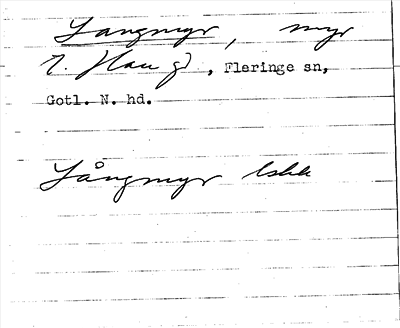 Langmyr, myr
Hau gd, Fleringe sn,
Gotl. N. hd.
Långmyr